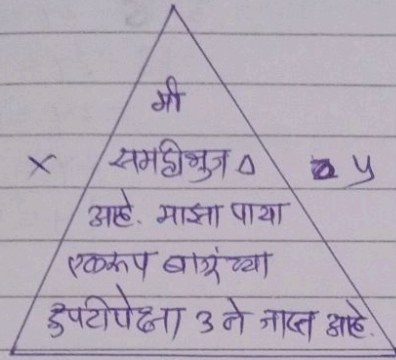 मी
x समद्वीभुज Δ y
आहे. माझा पाया
एकरूप बाजूंच्या
दुपटीपेक्षा 3 ने जास्त आहे.